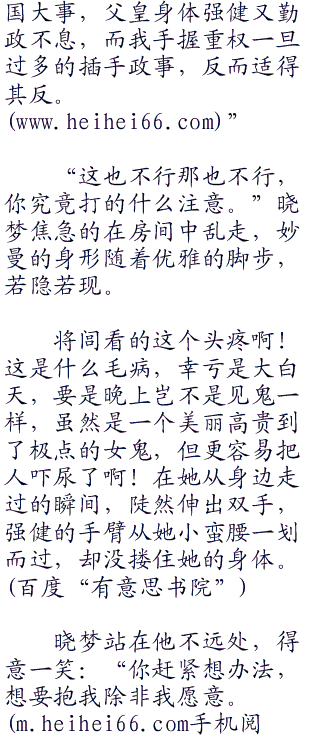 国大事，父皇身体强健又勤
政不息，而我手握重权一旦
过多的插手政事，反而适得
其反。
(www.heihei66.com)”
“这也不行那也不行，
你究竟打的什么注意。”晓
梦焦急的在房间中乱走，妙
曼的身形随着优雅的脚步，
若隐若现。
将闾看的这个头疼啊！
这是什么毛病，幸亏是大白
天，要是晚上岂不是见鬼一
样，虽然是一个美丽高贵到
了极点的女鬼，但更容易把
人吓尿了啊！在她从身边走
过的瞬间，陡然伸出双手，
强健的手臂从她小蛮腰一划
而过，却没搂住她的身体。
(百度“有意思书院”)
晓梦站在他不远处，得
意一笑：“你赶紧想办法，
想要抱我除非我愿意。
(m.heihei66.com手机阅